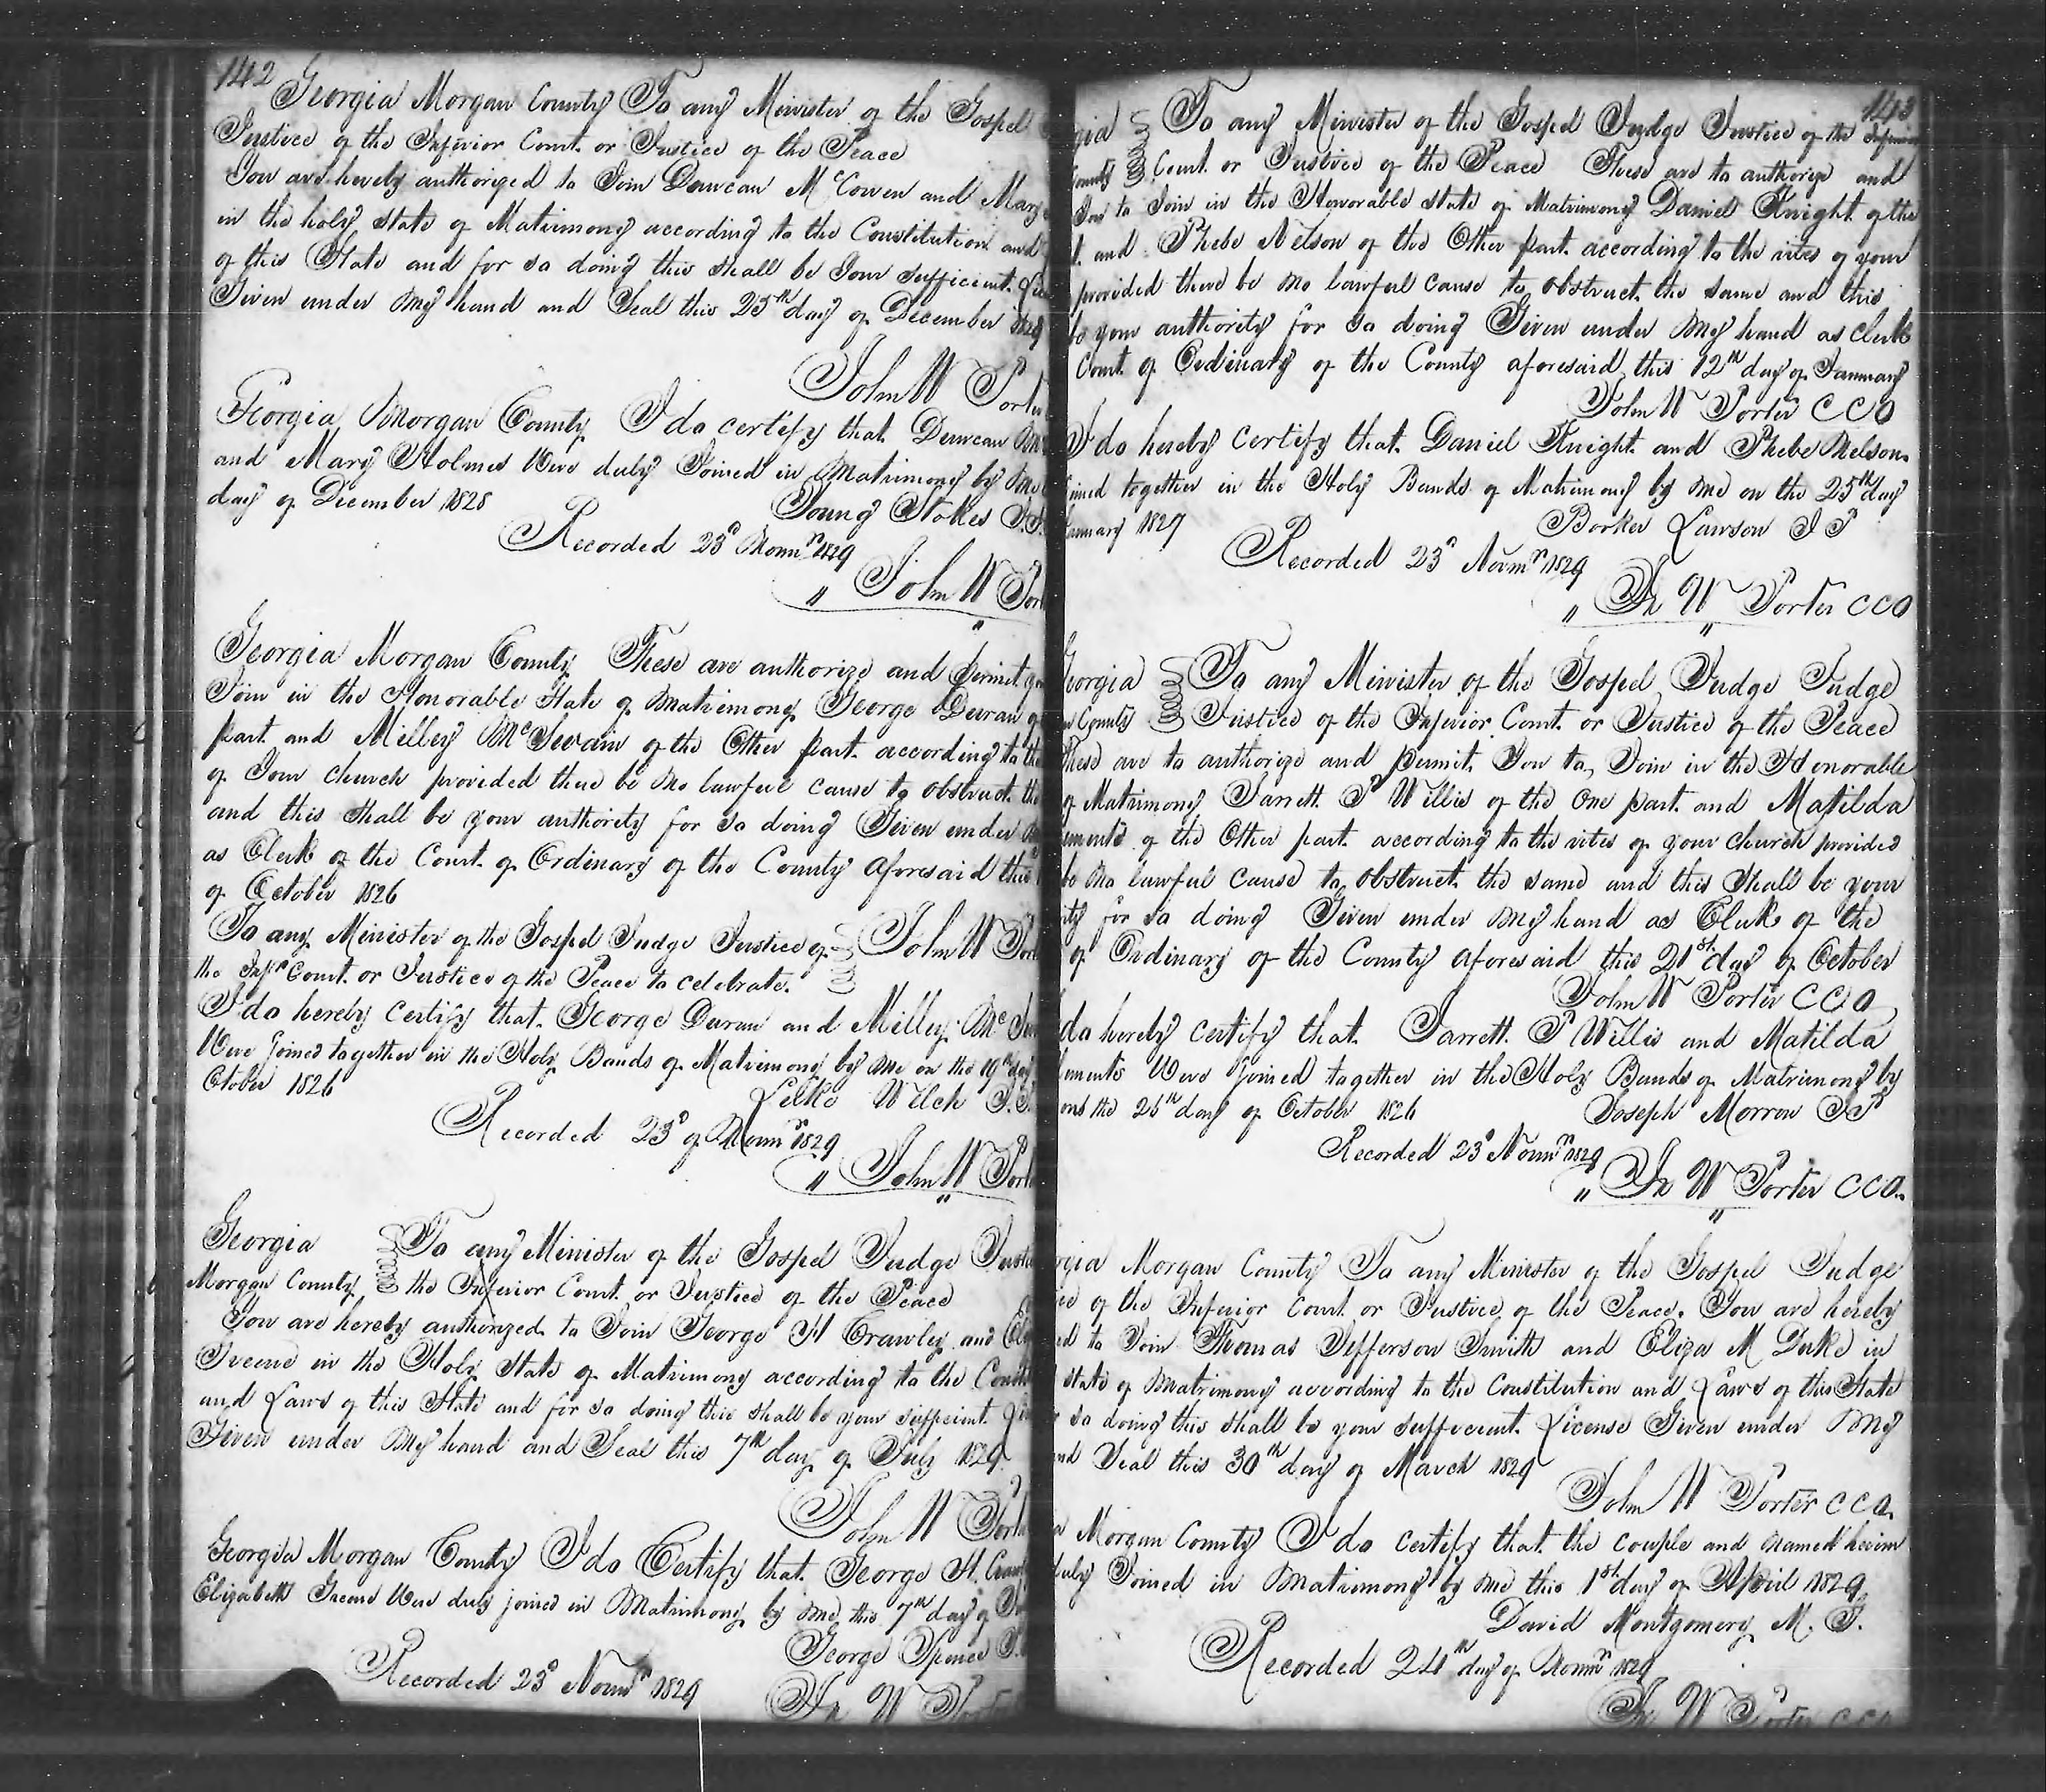 142
Georgia Morgan County To any Minister of the Gospel
Justice of the Inferior Court or Justice of the Peace
You are hereby authorized to Join Duncan McCowen and Mary
in the holy state of Matrimony according to the Constitution and
of this State and for so doing this shall be Your sufficient
Given under my hand and Seal this 25th day of December
John W Porter
Georgia Morgan County I do certify that Duncan Mc
and Mary Holmes Were duly Joined in Matrimony by Me
day of December 1828
Young Stokes J.P.
Recorded 23d Novmr 1829
" John W Por
"
Georgia Morgan County These are authorize and permit
Join in the Honorable State of Matrimony George Duran of
part and Milley McSwain of the Other part according to the
of Your church provided there be no lawful cause to obstruct the
and this shall be your authority for so doing Given under
as Clerk of the Court of Ordinary of the County aforesaid this
of October 1826
To any Minister of the Gospel Judge Justice of John W Por
the Infr Court or Justice of the Peace to celebrate.
I do hereby certify that George Duran and Milley Mc
Were Joined together in the Holy Bands of Matrimony by me on the 19th day
October 1826
Welch J.P.
Recorded 23d of Novmr 1829
" John W Port
"
Georgia To any Minister of the Gospel Judge Justi
Morgan County the Inferior Court or Justice of the Peace
You are hereby authorized to Join George H Crawley and
Greene in the Holy State of Matrimony according to the Const
and Laws of this State and for so doing this shall be your sufficient
Given under My hand and Seal this 7th day of July 1829
John W Porte
Georgia Morgan County I do Certify that George H. Craw
Elizabeth Greene Were duly joined in Matrimony by me this 7th day of
George Spence J.
Recorded 23d Novmr 1829
Jn W Porte
143
gia To any Minister of the Gospel Judge Justice of the Inferior
County Court or Justice of the Peace These are to authorize and
You to Join in the Honorable state of Matrimony Daniel Knight of the
t and Phebe Nelson of the Other part according to the rites of your
provided there be no lawful cause to obstruct the same and this
be your authority for so doing Given under my hand as Clerk
Court of Ordinary of the County aforesaid this 12th day of January
John W Porter CCO
I do hereby certify that Daniel Knight and Phebe Nelson
ined together in the Holy Bands of Matrimony by me on the 25th day
January 1827
Barker Lawson J P
Recorded 23d Novmr 1829
" Jn W Porter CCO
"
Georgia To any Minister of the Gospel Judge Judge
n County Justice of the Inferior Court or Justice of the Peace
These are to authorize and permit You to Join in the Honorable
of Matrimony Jarrett P Willis of the one part and Matilda
ments of the Other part according to the rites of your church provided
be no lawful cause to obstruct the same and this shall be your
rity for so doing Given under my hand as Clerk of the
of Ordinary of the County aforesaid this 21st day of October
John W Porter CCO
do hereby certify that Jarrett P Willis and Matilda
ements Were Joined together in the Holy Bands of Matrimony by
on the 26th day of October 1826
Joseph Morrow JP
Recorded 23d Novmr 1829
" Jn W Porter CCO.
"
rgia Morgan County To any Minister of the Gospel Judge
ce of the Inferior Court or Justice of the Peace. You are hereby
ed to Join Thomas Jefferson Smith and Eliza M Duke in
state of Matrimony according to the Constitution and Laws of this State
r so doing this shall be your sufficient License Given under My
nd Seal this 30th day of March 1829
John W Porter CCO.
a Morgan County I do certify that the couple and named herein
duly Joined in Matrimony by me this 1st day of April 1829
David Montgomery M. G.
Recorded 24th day of Novmr 1829
Jn W Porter CCO